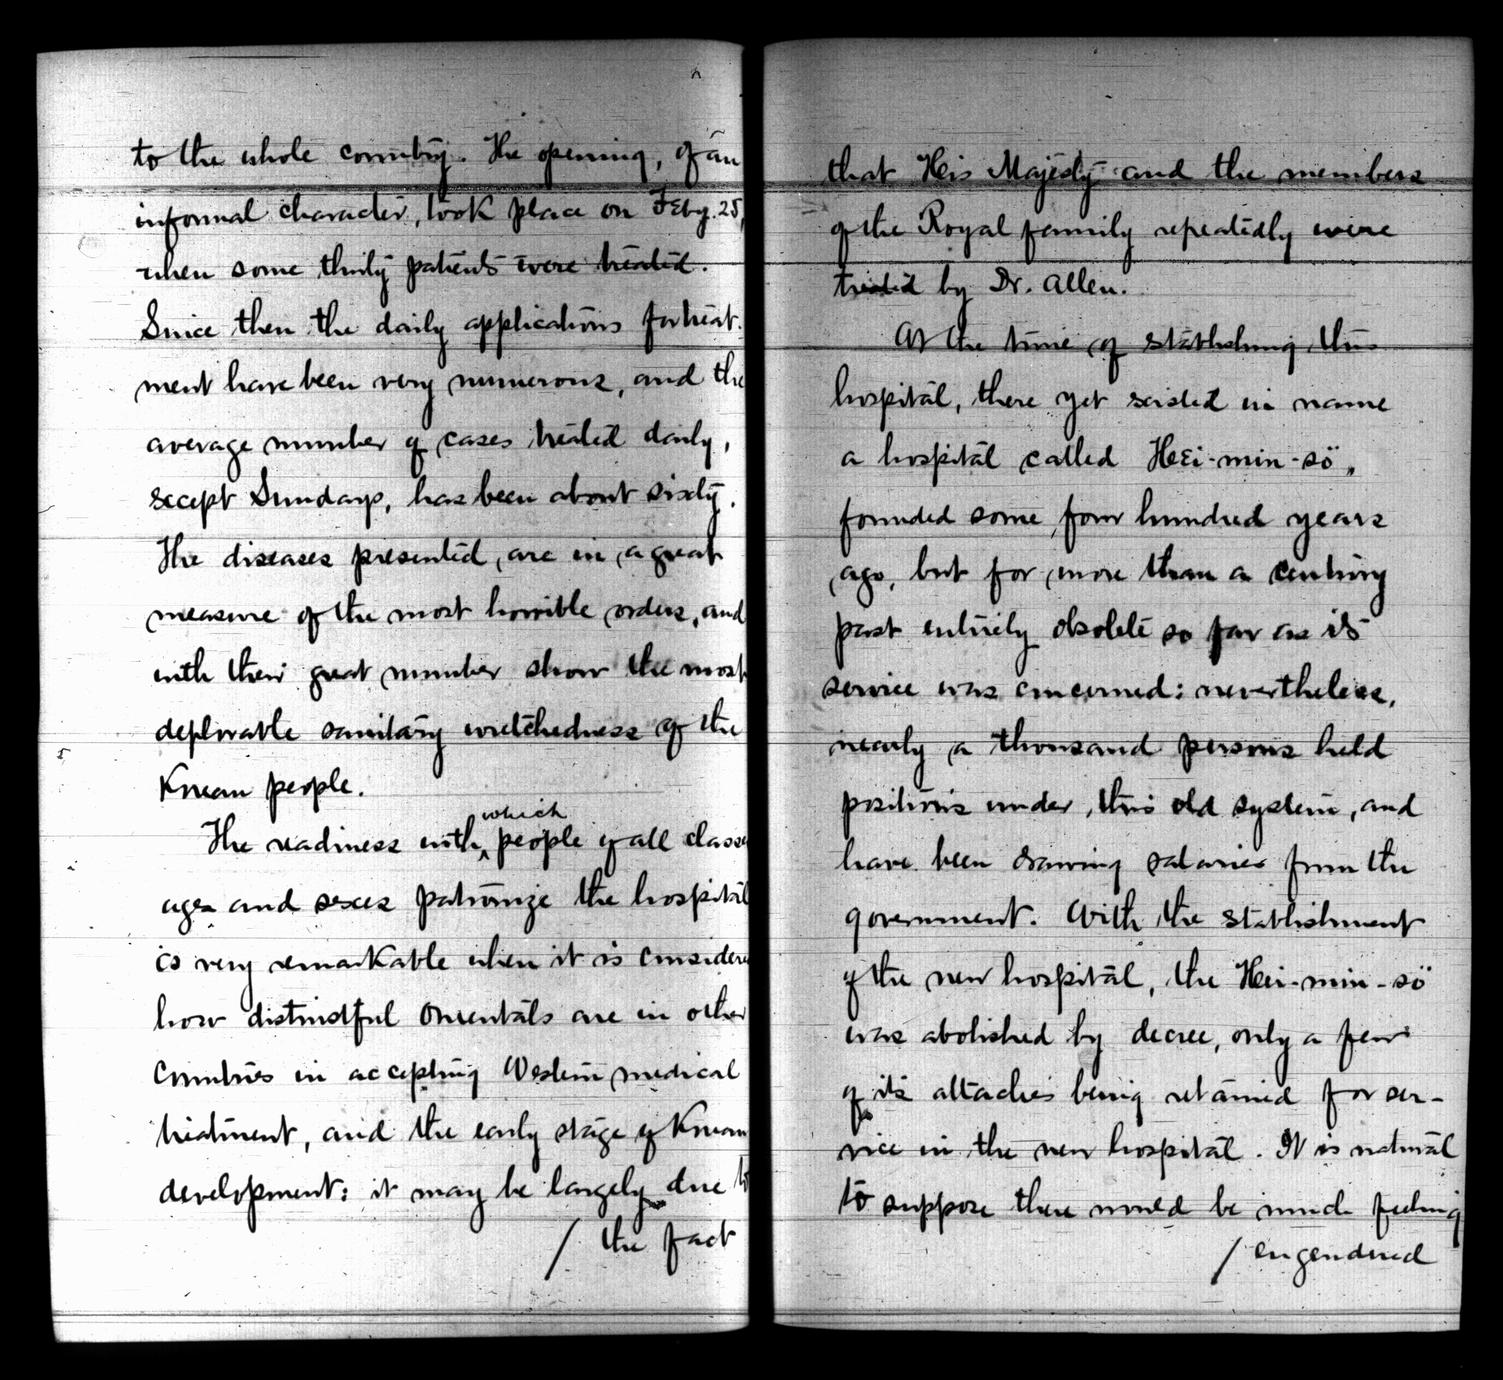 to the whole country. The opening, of an
informal character, took place on Feby. 25,
when some thirty patients were treated.
Since then the daily applications for treat-
ment have been very numerous, and the
average number of cases treated daily,
except Sundays, has been about sixty.
The diseases presented, are in a great
measure of the most horrible orders, and
with their great number show the most
deplorable sanitary wretchedness of the
Korean people.
The readiness with which people of all classe
ages and sexes patronize the hospital
is very remarkable when it is considere
how distrustful Orientals are in other
countries in accepting Western medical
treatment, and the early stage of Korean
development: it may be largely due to
/ the fact
that His Majesty and the members
of the Royal family repeatedly were
treated by Dr. Allen.
At the time of establishing this
hospital, there yet existed in name
a hospital called Hei-min-sö,
founded some four hundred years
ago, but for more than a century
past entirely obsolete so far as its
service was concerned: nevertheless,
nearly a thousand persons held
positions under this old system, and
have been drawing salaries from the
government. With the establishment
of the new hospital, the Hei-min-sö
was abolished by decree, only a few
of its attachés being retained for ser-
vice in the new hospital. It is natural
to suppose there would be much feeling
/ engendered